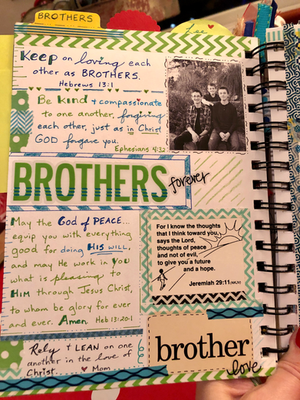 BROTHERS
KEEP on loving each
other as BROTHERS.
Hebrews 13:1
Be kind & compassionate
to one another, forgiving
each other, just as in Christ
GOD forgave you.
Ephesians 4:32
BROTHERS
forever
May the God of PEACE...
equip you with everything
good for doing HIS WILL,
and may He work in YOU
what is pleasing to
HIM through Jesus Christ,
to whom be glory for ever
and ever. Amen. Heb 13:20-1
For I know the thoughts
that I think toward you,
says the Lord,
thoughts of peace
and not of evil,
to give you a future
and a hope.
Jeremiah 29:11
Rely & LEAN on one
another in the love of
Christ. Mom
brother
love